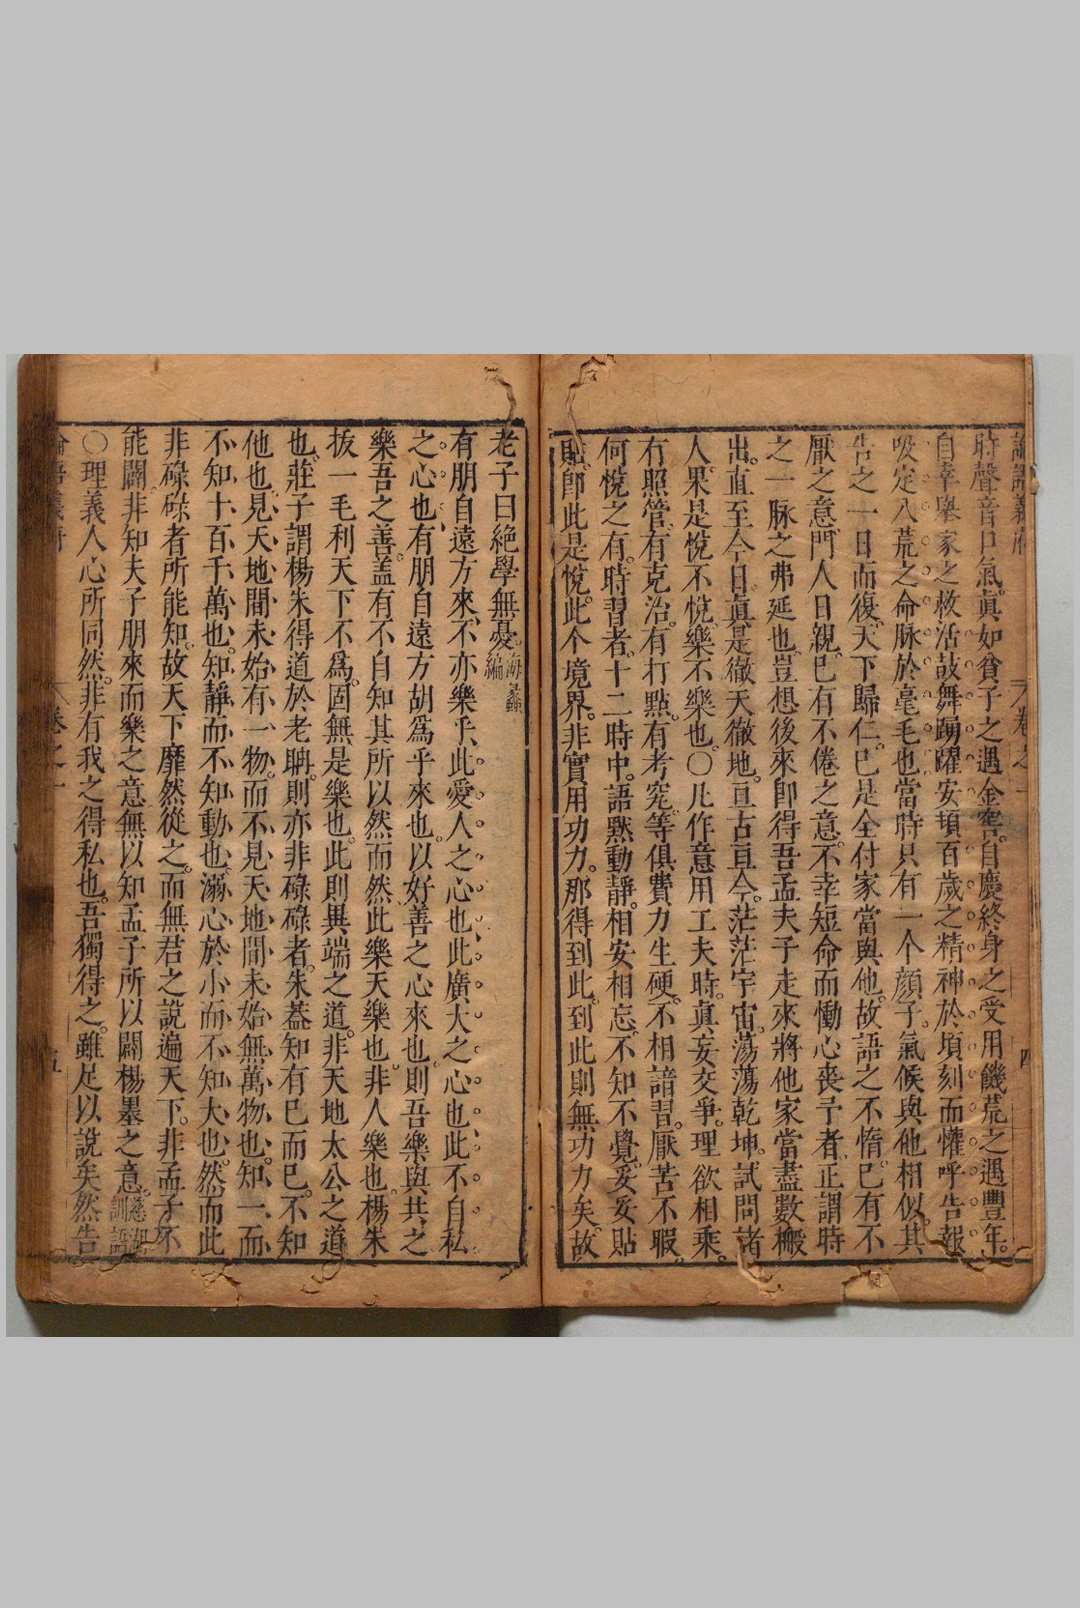 論語義府 卷之一 四
時聲音口氣真如貧子之遇金窖自慶終身之受用饑荒之遇豐年
自幸舉家之救活鼓舞踴躍安頓百歲之精神於頃刻而懽呼告報
吸定八荒之命脉於毫毛也當時只有一个顔子氣候與他相似其
告之一日而復天下歸仁巳是全付家當與他故語之不惰巳有不
厭之意門人日親巳有不倦之意不幸短命而慟心喪予者正謂時
之一脉之弗延也豈想後來卽得吾孟夫子走來將他家當盡數搬
出直至今日眞是徹天徹地亘古亘今茫茫宇宙蕩蕩乾坤試問諸
人果是悅不悅樂不樂也〇凡作意用工夫時眞妄交爭理欲相乘
有照管有克治有打點有考究等俱費力生硬不相諳習厭苦不暇
何悅之有時習者十二時中語默動靜相安相忘不知不覺妥妥貼
貼卽此是悅此个境界非實用功力那得到此到此則無功力矣故
老子曰絕學無憂海蠡編
有朋自遠方來不亦樂乎此愛人之心也此廣大之心也此不自私
之心也有朋自遠方胡爲乎來也以好善之心來也則吾樂與共之
樂吾之善蓋有不自知其所以然而然此樂天樂也非人樂也楊朱
拔一毛利天下不爲固無是樂也此則異端之道非天地太公之道
也莊子謂楊朱得道於老聃則亦非碌碌者朱蓋知有巳而巳不知
他也見天地間未始有一物而不見天地間未始無萬物也知一而
不知十百千萬也知靜而不知動也溺心於小而不知大也然而此
非碌碌者所能知故天下靡然從之而無君之說遍天下非孟子不
能闢非知夫子朋來而樂之意無以知孟子所以闢楊墨之意慈湖訓語
〇理義人心所同然非有我之得私也吾獨得之雖足以說矣然告
論語義府 卷之一 五